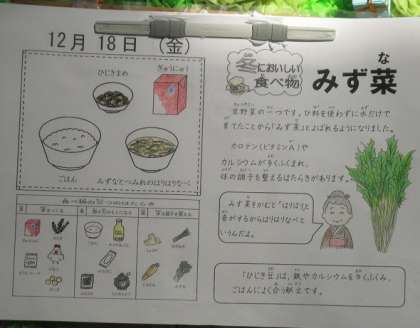 12月 18日 (金)
ひじきまめ
ぎゅうにゅう
ごはん
みずなとつみれのはりはりなべ
冬においしい
食べ物
みず菜
な
京野菜の一つです。ひ料を使わずに水だけで
育てたことから「みず菜」とよばれるようになりました。
カロテン(ビタミンA)や
カルシウムが多くふくまれ、
体の調子を整えるはたらきがあります。
みず菜をかむと「はりはり」と
音がするからはりはりなべと
いうんだよ。
「ひじき豆」は、鉄やカルシウムを多くふくみ、
ごはんによく合う献立です。